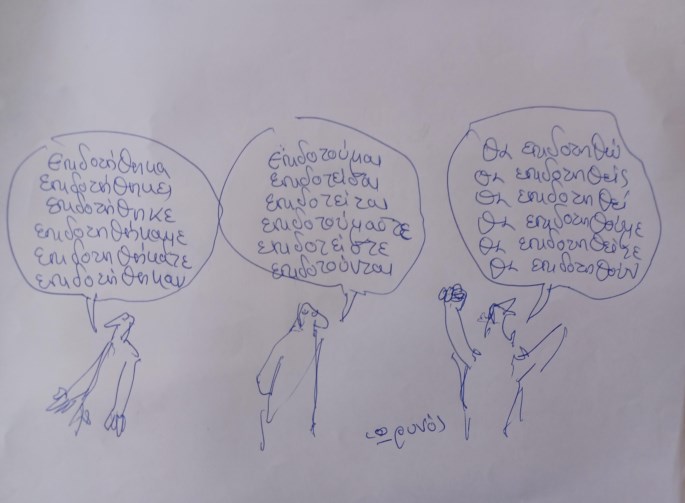 Επιδοτήθηκα
επιδοτήθηκες
επιδοτήθηκε
επιδοτηθήκαμε
επιδοτηθήκατε
επιδοτήθηκαν
επιδοτούμαι
επιδοτείσαι
επιδοτείται
επιδοτούμαστε
επιδοτείστε
επιδοτούνται
Θα επιδοτηθώ
Θα επιδοτηθείς
Θα επιδοτηθεί
Θα επιδοτηθούμε
Θα επιδοτηθείτε
Θα επιδοτηθούν